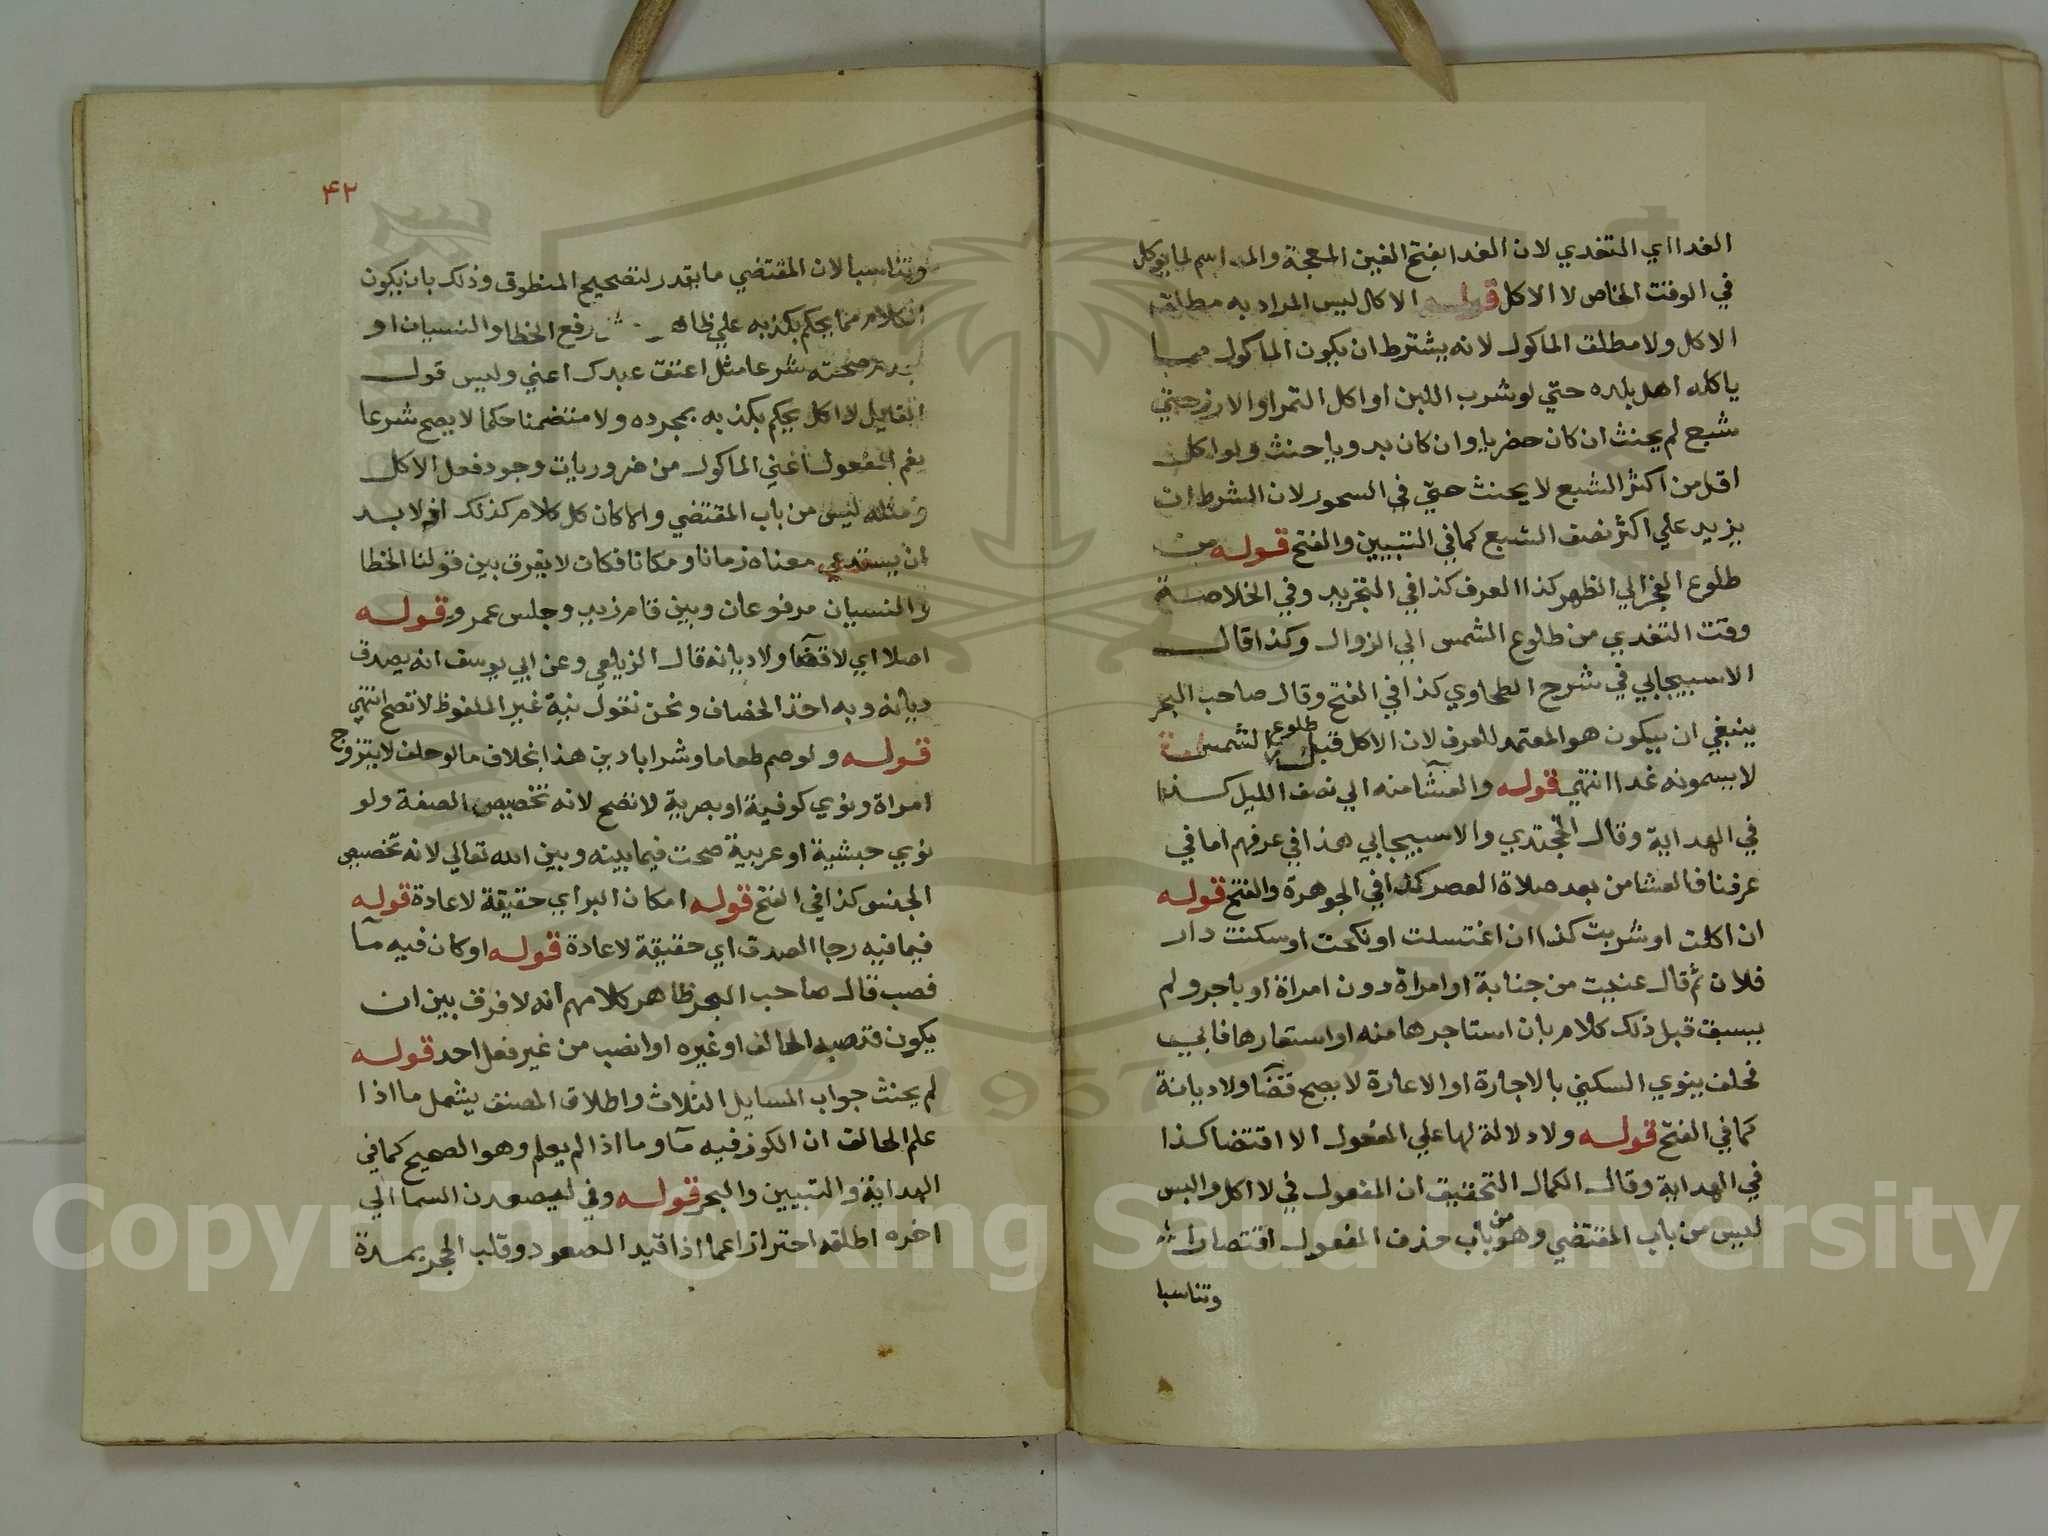 الغدا اي التغدي لان الغدا بفتح الغين المعجمة والمد اسم لما يوكل
في الوقت الخاص لا الاكل قوله الاكل ليس المراد به مطلق
الاكل ولا مطلق الماكول لانه يشترط ان يكون الماكول مما
ياكله اهل بلده حتي لو شرب اللبن او اكل التمر او الارز حتي
شبع لم يحنث ان كان حضريا وان كان بدويا حنث ولو اكل
اقل من اكثر الشبع لا يحنث حتي في السحور لان الشرط ان
يزيد علي اكثر نصف الشبع كما في التبيين والفتح قوله من
طلوع الفجر الي الظهر كذا العرف كذا في التجريد وفي الخلاصة
وقت التغدي من طلوع الشمس الي الزوال وكذا قال
الاسبيجابي في شرح الطحاوي كذا في الفتح وقال صاحب البحر
ينبغي ان يكون هو المعتمد للعرف لان الاكل قبل طلوع الشمس
لا يسمونه غدا انتهي قوله والعشا منه الي نصف الليل كذا
في الهداية وقال الخجندي والاسبيجابي هذا في عرفهم اما في
عرفنا فالعشا من بعد صلاة العصر كذا في الجوهرة والفتح قوله
ان اكلت او شربت كذا ان اغتسلت او نكحت او سكنت دار
فلان ثم قال عنيت من جنابة او امراة دون امراة او باجر ولم
يسبق قبل ذلك كلام بان استاجرها منه او استعارها فابي
فحلف ينوي السكني بالاجارة او الاعارة لا يصح قضآ ولا ديانة
كما في الفتح قوله ولا دلالة لها علي المفعول الا اقتضا كذا
في الهداية وقال الكمال التحقيق ان المفعول في لا اكل والبس
ليس من باب المقتضي وهو من باب حذف المفعول اقتصارا
وتناسبا
٤٢
وتناسبا لان المقتضي ما يقدر لتصحيح المنطوق وذلك بان يكون
الكلام مما يحكم بكذبه علي ظاهـ رفع الخطا والنسيان او
صحته شرعا مثل اعتق عبدك اعني وليس قول
القايل لا اكل يحكم بكذبه بمجرده ولا متضمنا حكما لا يصح شرعا
نعم المفعول اعني الماكول من ضروريات وجود فعل الاكل
ومثله ليس من باب المقتضي والا كان كل كلام كذلك اذ لا بد
ان يستدعي معناه زمانا ومكانا فكان لا يفرق بين قولنا الخطا
والنسيان مرفوعان وبين قام زيد وجلس عمرو قوله
اصلا اي لا قضآ ولا ديانه قال الزيلعي وعن ابي يوسف انه يصدق
ديانه وبه اخذ الخصاف ونحن نقول نية غير الملفوظ لا تصح انتهي
قوله ولو ضم طعاما او شرابا دين هذا بخلاف ما لو حلف لا يتزوج
امراة ونوي كوفية او بصرية لا تصح لانه تخصيص الصفة ولو
نوي حبشية او عربية صحت فيما بينه وبين الله تعالي لانه تخصيص
الجنس كذا في الفتح قوله امكان البر اي حقيقة لا عادة قوله
فيما فيه رجا الصدق اي حقيقة لا عادة قوله او كان فيه مآ
فصب قال صاحب البحر ظاهر كلامهم انه لا فرق بين ان
يكون قد صبه الحالف او غيره او انصب من غير فعل احد قوله
لم يحنث جواب المسايل الثلاث واطلاق المصنف يشمل ما اذا
علم الحالف ان الكوز فيه مآ وما اذا لم يعلم وهو الصحيح كما في
الهداية والتبيين والبحر قوله وفي ليصعدن السما الي
اخره اطلقه احترازا عما اذا قيد الصعود وقلب الحجر بمدة
Copyright © King Saud University
1957